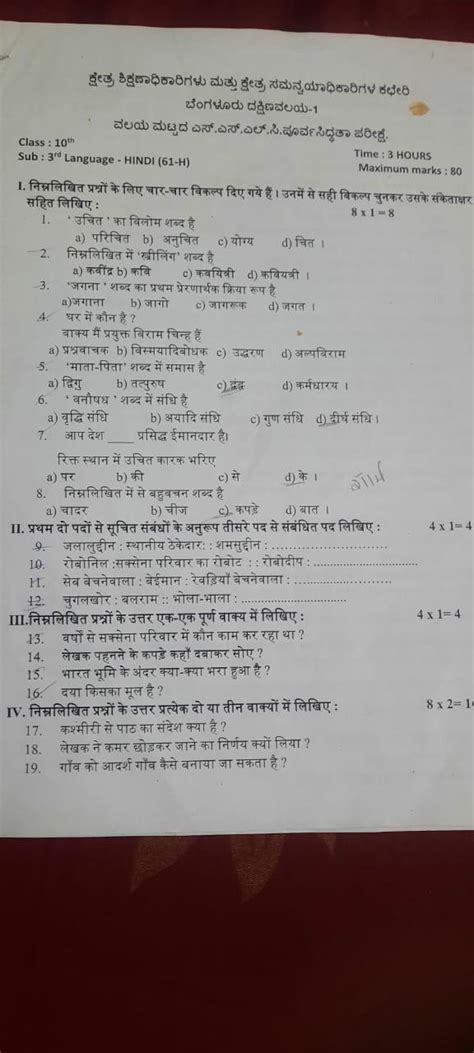 ಕ್ಷೇತ್ರ ಶಿಕ್ಷಣಾಧಿಕಾರಿಗಳು ಮತ್ತು ಕ್ಷೇತ್ರ ಸಮನ್ವಯಾಧಿಕಾರಿಗಳ ಕಛೇರಿ
ಬೆಂಗಳೂರು ದಕ್ಷಿಣವಲಯ-1
ವಲಯ ಮಟ್ಟದ ಎಸ್.ಎಸ್.ಎಲ್.ಸಿ.ಪೂರ್ವಸಿದ್ಧತಾ ಪರೀಕ್ಷೆ.
Class : 10th Time : 3 HOURS
Sub : 3rd Language - HINDI (61-H) Maximum marks : 80
I. निम्नलिखित प्रश्नों के लिए चार-चार विकल्प दिए गये हैं । उनमें से सही विकल्प चुनकर उसके संकेताक्षर
सहित लिखिए : 8 x 1 = 8
1. ' उचित ' का विलोम शब्द है
a) परिचित b) अनुचित c) योग्य d) चित ।
2. निम्नलिखित में 'स्त्रीलिंग' शब्द है
a) कवींद्र b) कवि c) कवयित्री d) कवियत्री ।
3. 'जगना ' शब्द का प्रथम प्रेरणार्थक क्रिया रूप है
a)जगाना b) जागो c) जागरूक d) जगत ।
4. घर में कौन है ?
वाक्य मैं प्रयुक्त विराम चिन्ह हैं
a) प्रश्नवाचक b) विस्मयादिबोधक c) उद्धरण d) अल्पविराम
5. 'माता-पिता' शब्द में समास है
a) द्विगु b) तत्पुरुष c) द्वंद्व d) कर्मधारय ।
6. ' वनौषध ' शब्द में संधि है
a) वृद्धि संधि b) अयादि संधि c) गुण संधि d) दीर्घ संधि ।
7. आप देश ____ प्रसिद्ध ईमानदार है।
रिक्त स्थान में उचित कारक भरिए
a) पर b) की c) से d) के ।
8. निम्नलिखित में से बहुवचन शब्द है
a) चादर b) चीज c) कपड़े d) बात ।
II. प्रथम दो पदों से सूचित संबंधों के अनुरूप तीसरे पद से संबंधित पद लिखिए : 4 x 1= 4
9. जलालुद्दीन : स्थानीय ठेकेदार: : शमसुद्दीन : ..........................
10. रोबोनिल :सक्सेना परिवार का रोबोट : : रोबोदीप : ..........................
11. सेब बेचनेवाला : बेईमान : रेवड़ियाँ बेचनेवाला : ..........................
12. चुगलखोर : बलराम :: भोला-भाला : ..........................
III.निम्नलिखित प्रश्नों के उत्तर एक-एक पूर्ण वाक्य में लिखिए : 4 x 1= 4
13. वर्षों से सक्सेना परिवार में कौन काम कर रहा था ?
14. लेखक पहनने के कपड़े कहाँ दबाकर सोए ?
15. भारत भूमि के अंदर क्या-क्या भरा हुआ है ?
16. दया किसका मूल है ?
IV. निम्नलिखित प्रश्नों के उत्तर प्रत्येक दो या तीन वाक्यों में लिखिए : 8 x 2= 1
17. कश्मीरी से पाठ का संदेश क्या है ?
18. लेखक ने कमर छोड़कर जाने का निर्णय क्यों लिया ?
19. गाँव को आदर्श गाँव कैसे बनाया जा सकता है ?